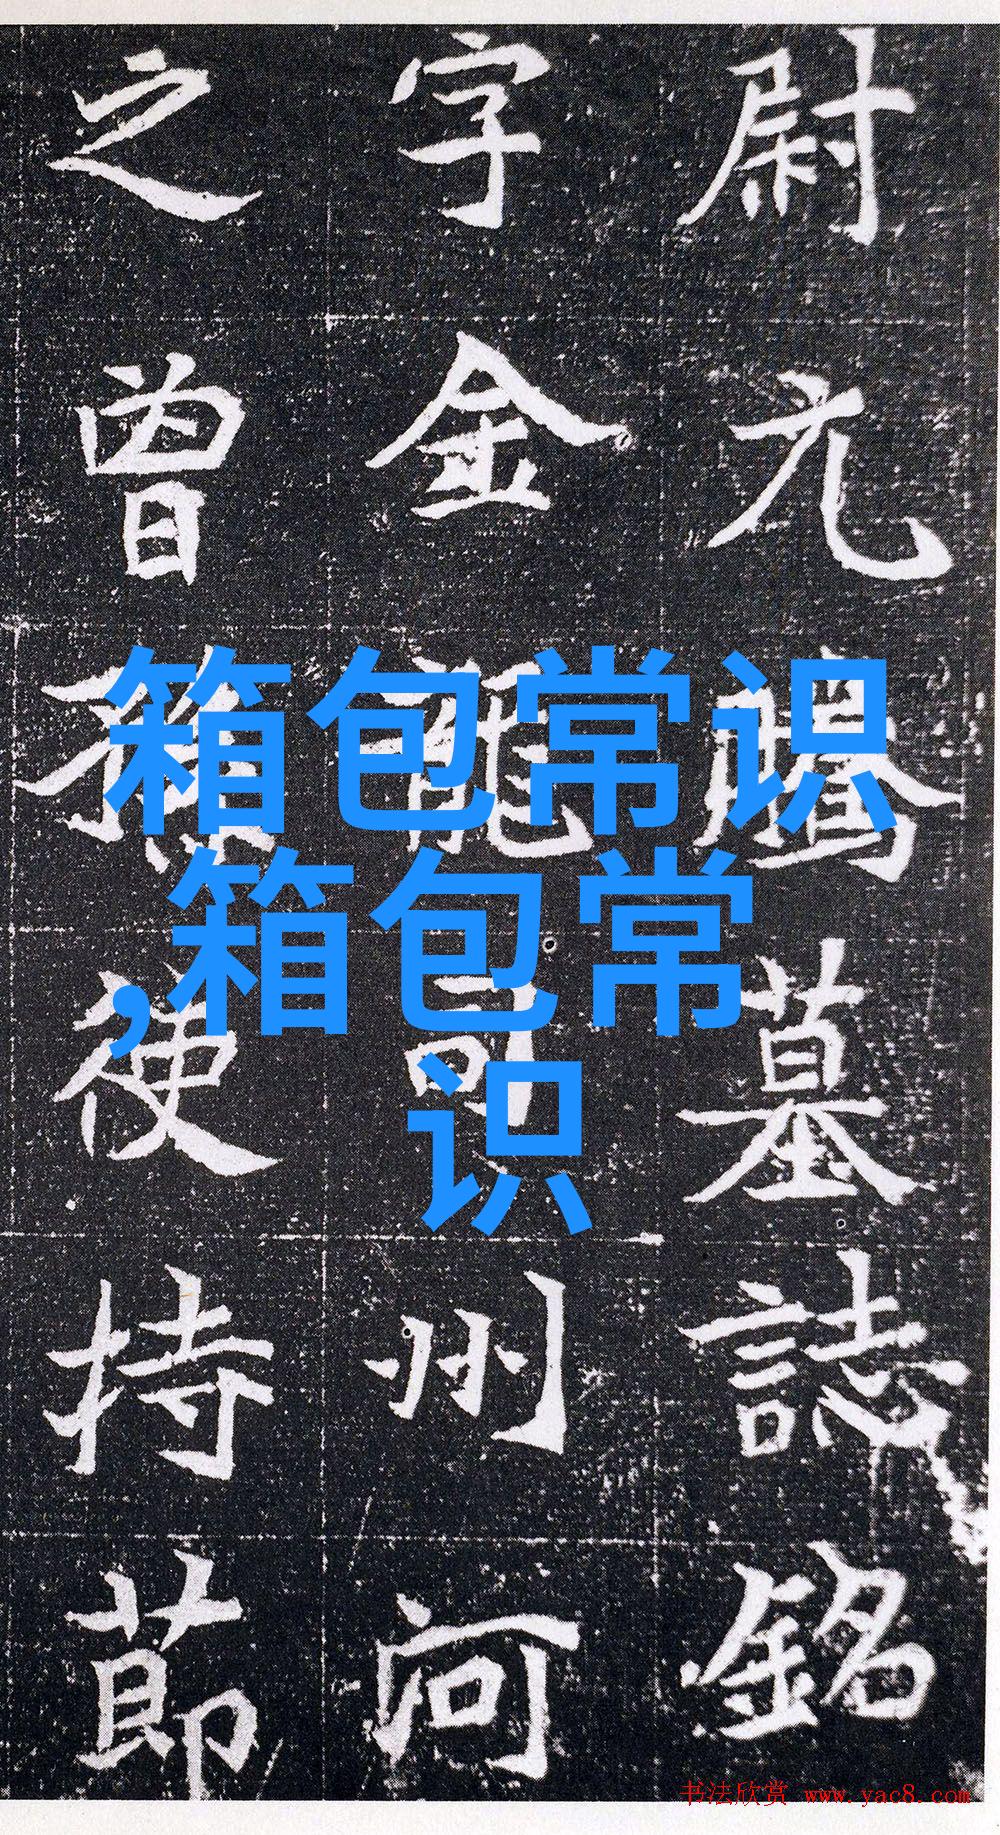 箱包常识
,箱包常
识
尉元騰墓誌銘
字金龍司州河
之曾孫使持莭
书法欣赏 www.yac8.com